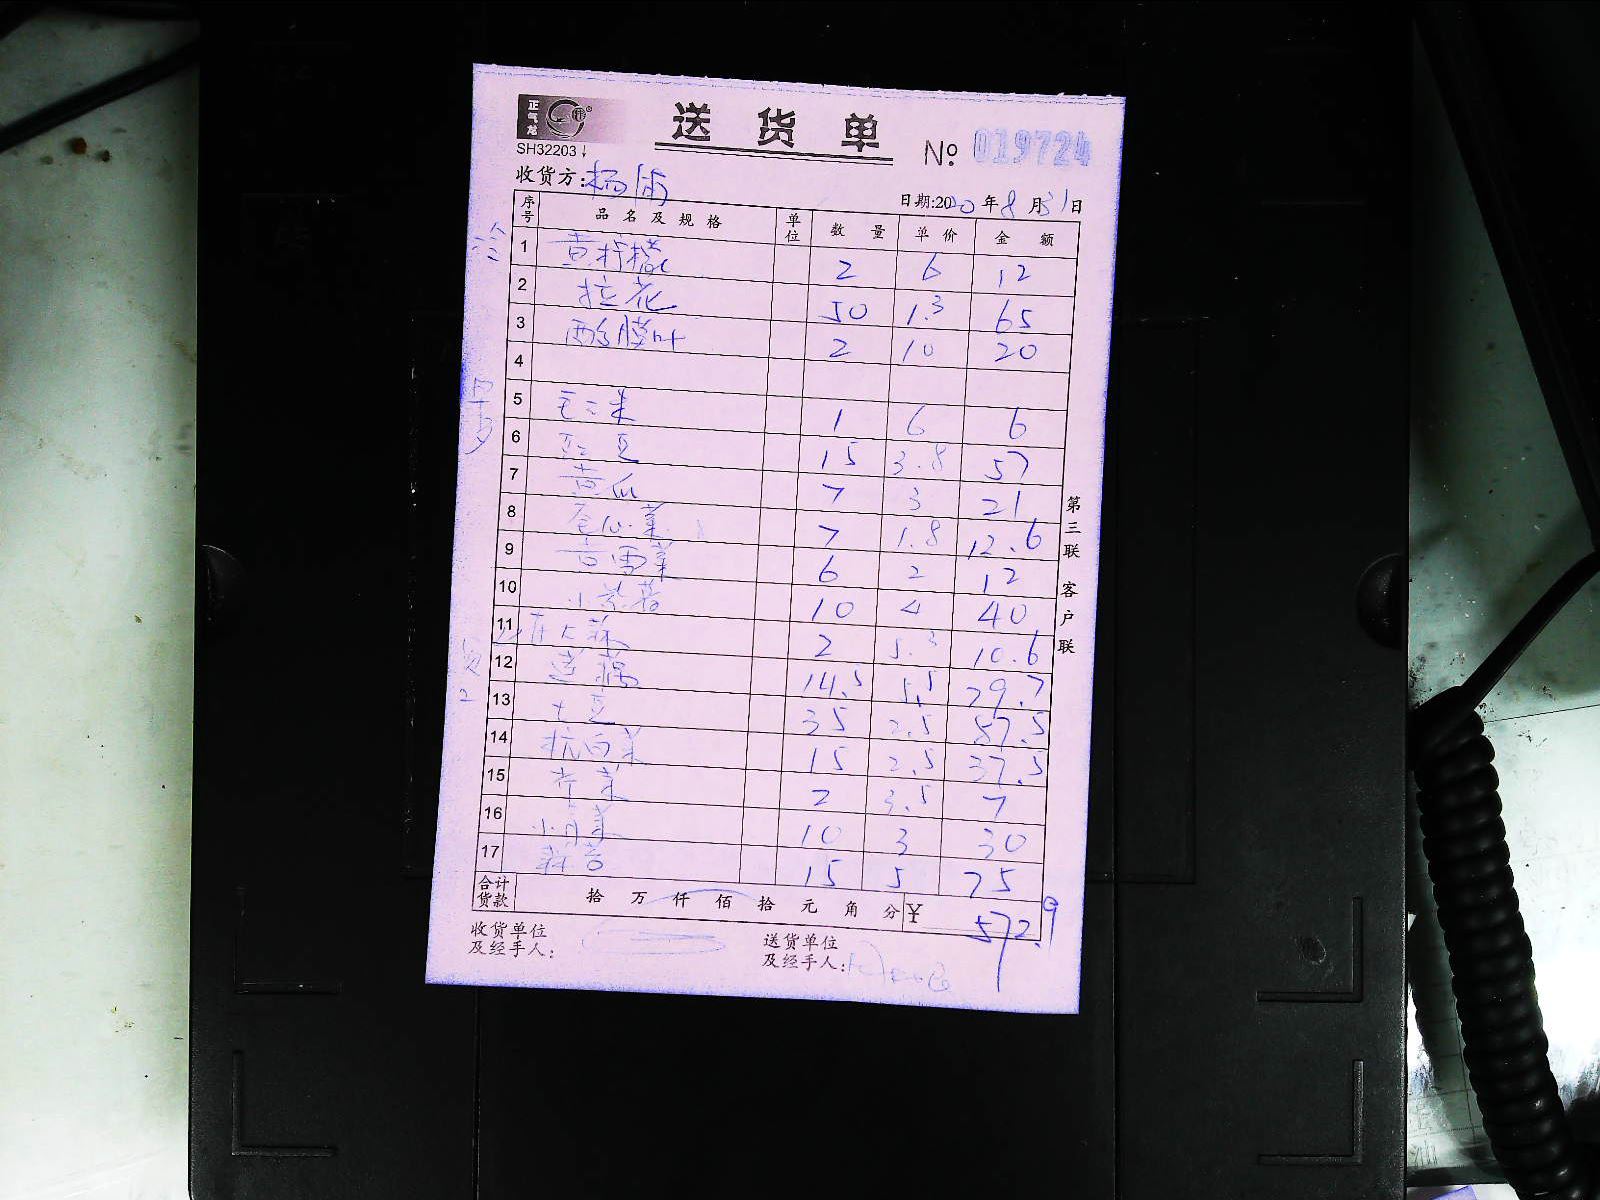 正气龙
送货单
SH32203
№ 019724
收货方: 杨
日期:2020年8月31日
序号 品名及规格 单位 数量 单价 金额
1 黄柠檬 2 6 12
2 拉花 50 1.3 65
3 酸膜叶 2 10 20
4
5 毛毛菜 1 6 6
6 豇豆 15 3.8 57
7 黄瓜 7 3 21
8 卷心菜 7 1.8 12.6
9 6 2 12
10 小紫薯 10 4 40
11 大蒜 2 5.3 10.6
12 莲藕 14.5 5.5 79.7
13 土豆 35 2.5 87.5
14 杭白菜 15 2.5 37.5
15 芹菜 2 3.5 7
16 小青菜 10 3 30
17 蒜苔 15 5 75
合计货款 拾 万 仟 佰 拾 元 角 分 ¥ 572.9
收货单位及经手人:
送货单位及经手人:
第三联 客户联